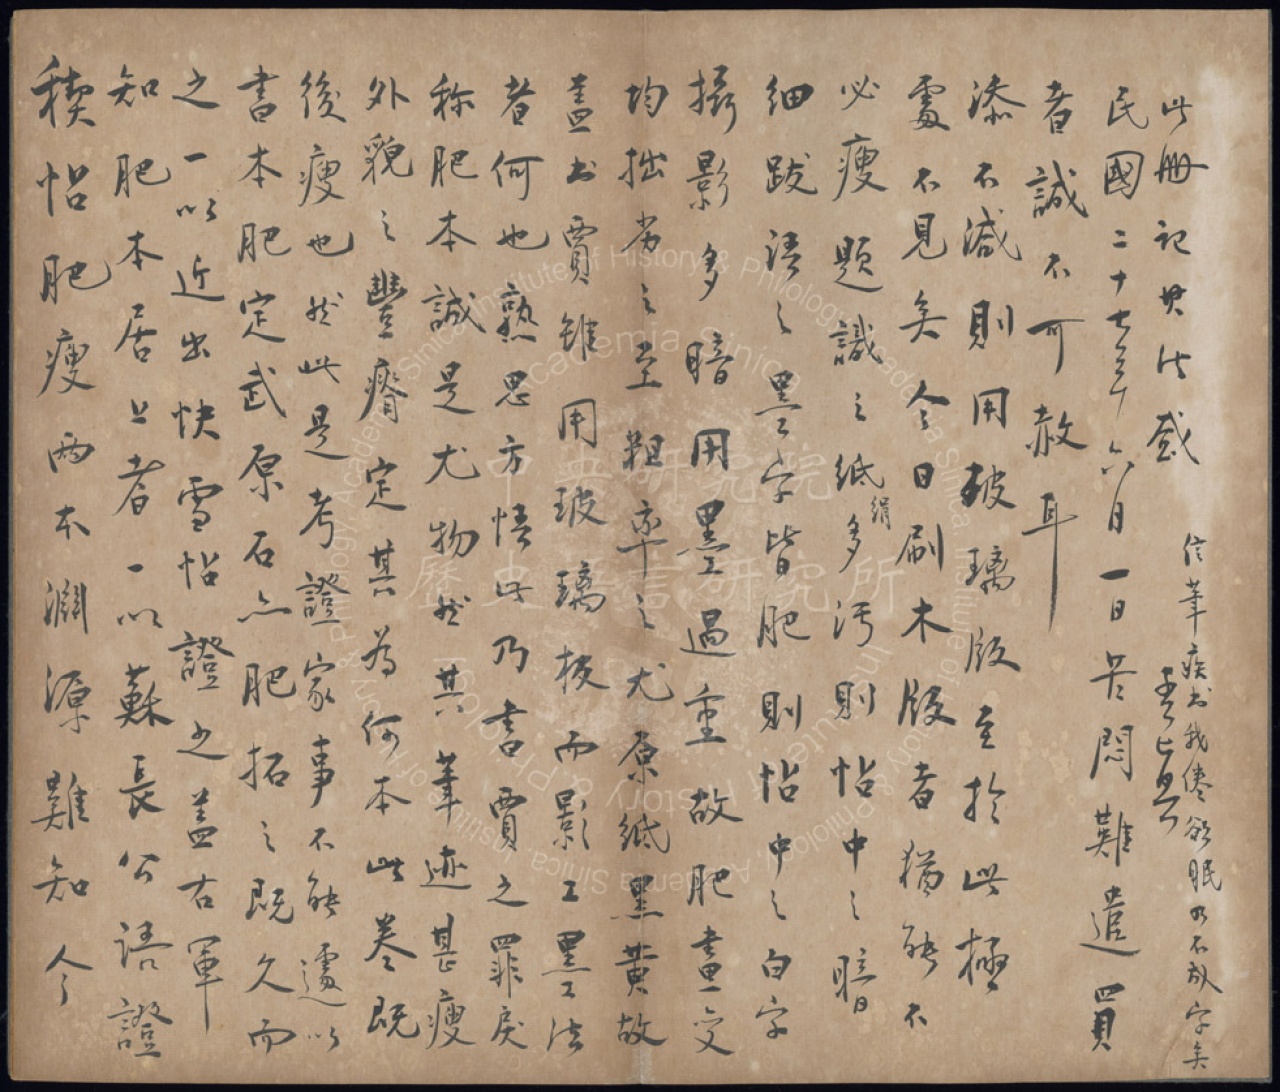 稧怗肥瘦兩本淵源難知今
知肥本居上者一以蘇長公語證
之一以近出快雪帖證之蓋右軍
書本肥定武原石亦肥拓之既久而
後瘦也然此是考證家事不能遽以
外貌之豐瘠定其為何本此卷既
称肥本誠是尤物然其筆迹甚瘦
者何也熟思方悟此乃書賈之罪戾
蓋書賈雖用玻璃板而影工墨法
均拙劣之至粗率之尤原紙黑黃故
攝影多暗用墨過重故肥畫變
細跋語之墨字皆肥則帖中之白字
必瘦題識之紙絹多污則帖中之暗
處不見矣今日刷木版者猶能不
添不減則用玻璃版至於此極
者誠不可赦耳
民國二十七年六月一日岑悶難遣買
此冊記其所感 孟真
信筆疾書我倦欲眠不成字矣
中央研究院
歷史語言研究所
Institute of History & Philology, Academia Sinica